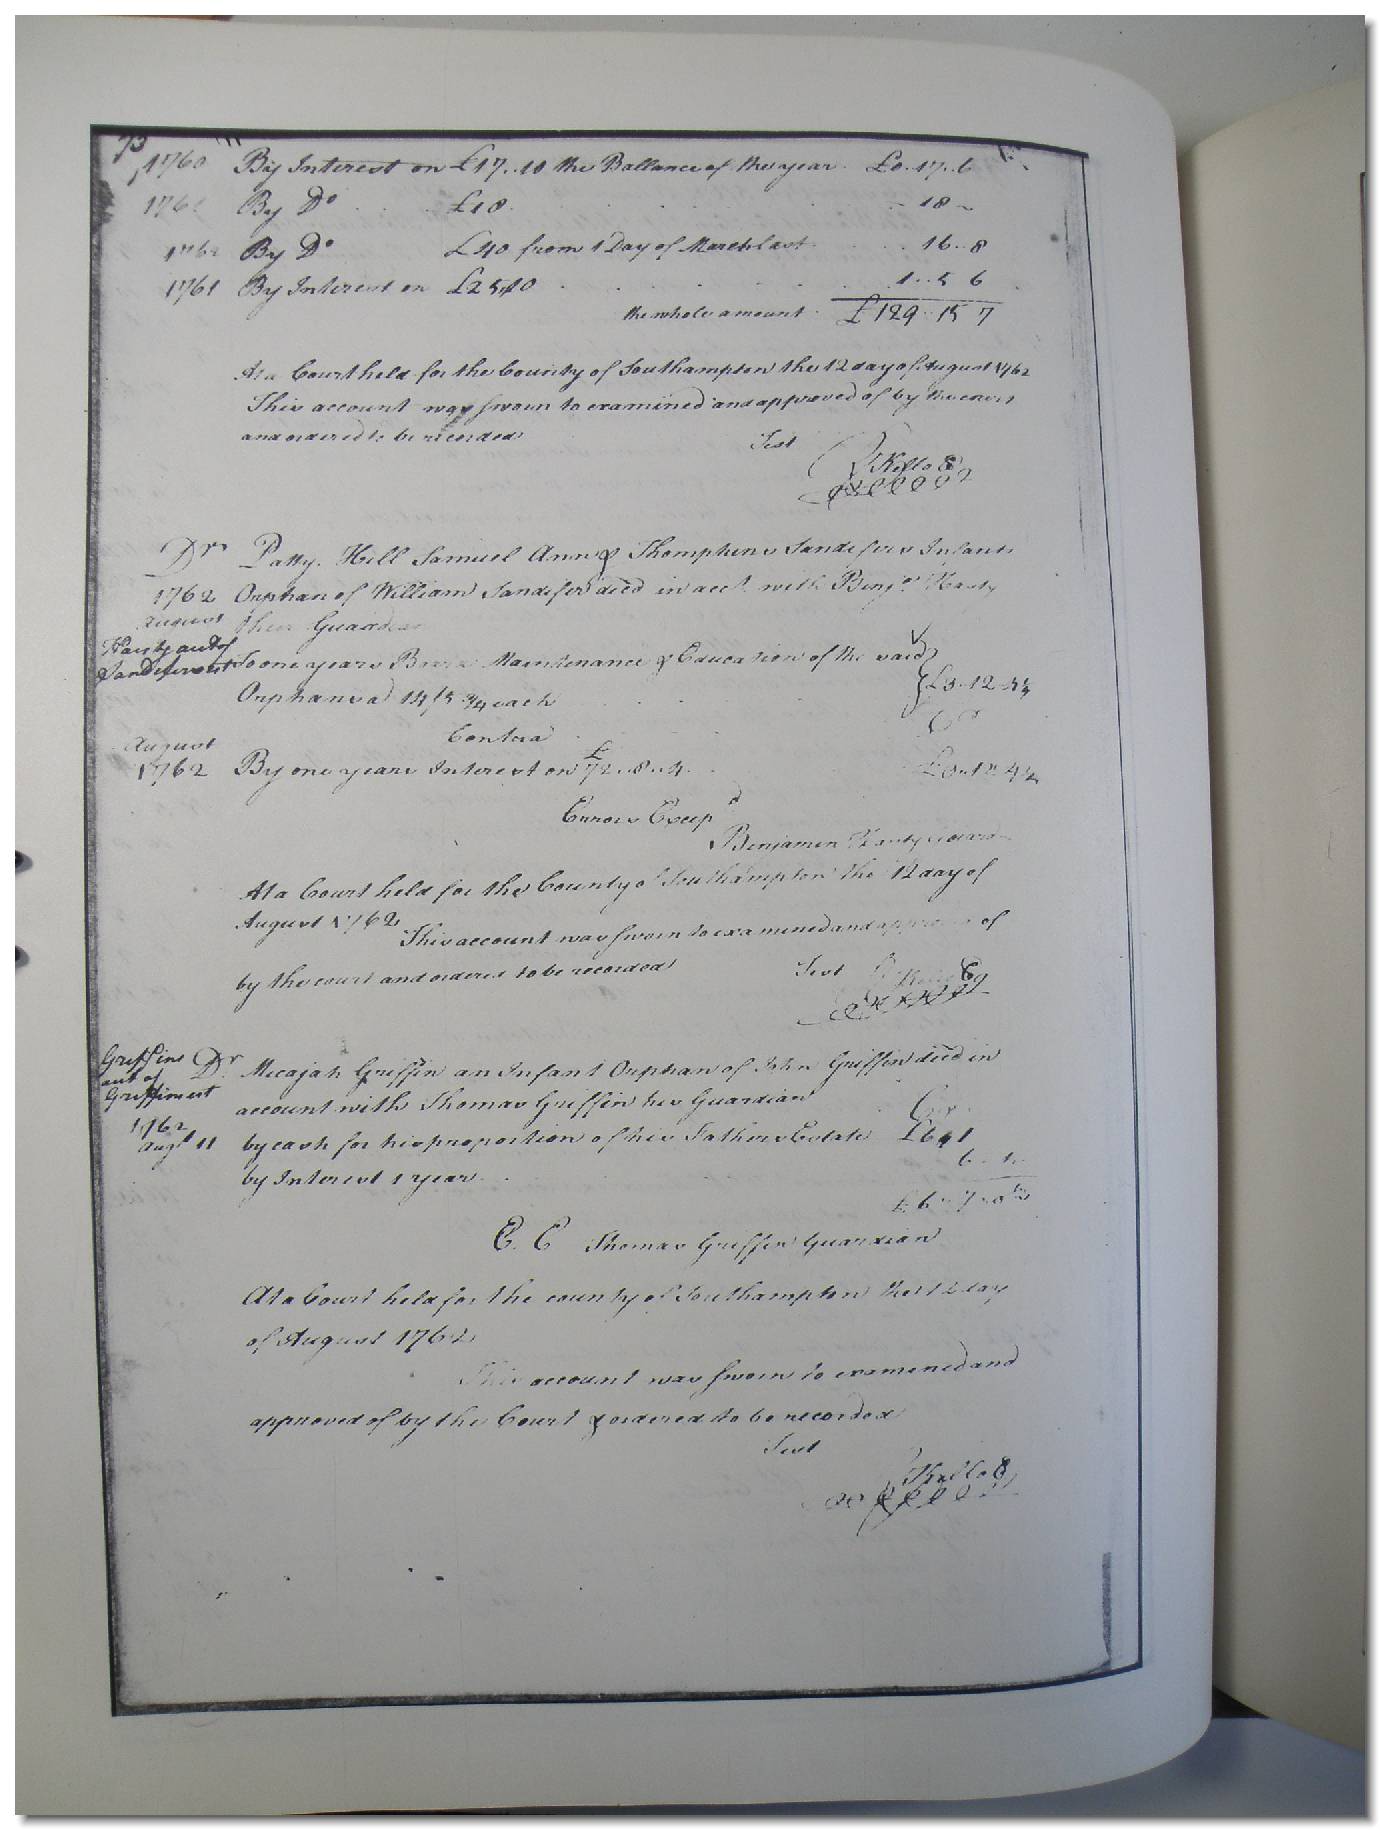 1760 By Interest on £17..10 the Ballance of the year £0..17..6
176 By Do £18 - 18 -
1762 By Do £40 from 1 Day of March last 16..8
1761 By Interest on £25,10 1..5 6
the whole amount £129..15 7
At a Court held for the County of Southampton the 12 day of August 1762
This account was sworn to examined and approved of by the court
and ordered to be recorded
Test
Kello
Dr Patty. Hill Samuel Ann & Thomphins Sandefers Infants
1762 Orphan of William Sandefer deed in acct. with Benja.
August their Guardian
acct of
To one years Maintenance & Education of the said
Orphans a 14/5 3/4 each £3..12..
Contra Cr
August
1762 By one years Interest on £72..8..4 £3..12..4
Errors Excepd
Benjamen
At a Court held for the County of Southampton the 12 day of
August 1762
This account was sworn to examined and approved of
by the court and ordered to be recorded Test
Kello
Griffins Dr Micajah Griffin an Infant Orphan of John Griffin deed in
act of
account with Thomas Griffin his Guardian
1762 Cr
Augt 11 by cash for his proportion of his Fathers Estate £6 1
by Interest 1 year 6
£6..7..0
E. E Thomas Griffin Guardian
At a Court held for the county of Southampton the 12 day
of August 1762
This account was sworn to examened and
approved of by the Court & ordered to be recorded
Test
Kello